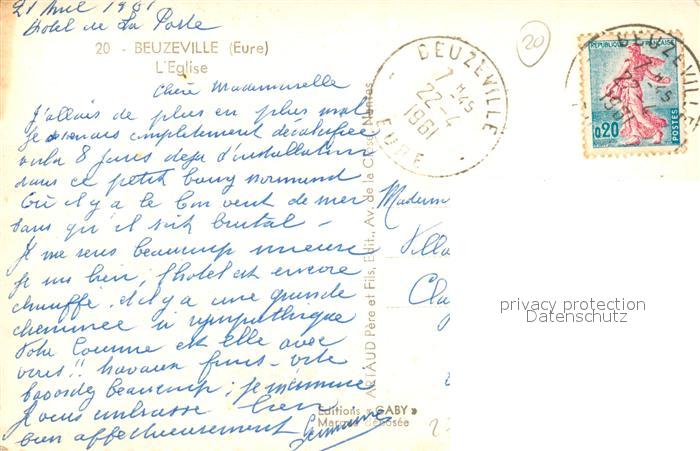 21 Avril 1961
Hotel de la Poste
20 - BEUZEVILLE (Eure)
L'Eglise
Chère Mademoiselle
J'allais de plus en plus mal
Je devenais complètement
voila 8 jours deja d'installation
dans ce petit bourg normand
Où il y a le bon vent de mer
sans qu'il soit brutal -
Je me sens beaucoup mieux
je suis bien, l'hotel est encore
chauffé. et il y a une grande
cheminée si sympathique
Votre est elle avec
vous!! travaux finis - vite
beaucoup; je
Je vous embrasse bien
bien affectueusement Germaine
ARTAUD Père et Fils, Edit., Av. de la Close, Nantes
Editions « GABY »
Marque déposée
20
BEUZEVILLE
7 H 45
22-4
1961
EURE
REPUBLIQUE FRANÇAISE
0,20
POSTES
BEUZEVILLE
7 H 45
22-4
1961
Madem
Villa
privacy protection
Datenschutz